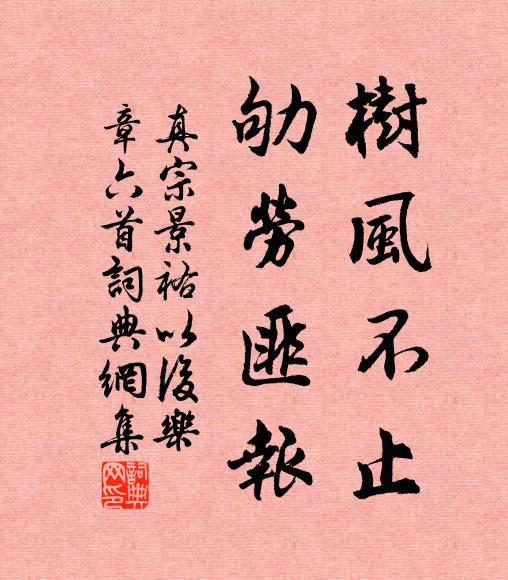 樹風不止
劬勞匪報
真宗景祐以後樂
章六首詞典網集
詞典网印